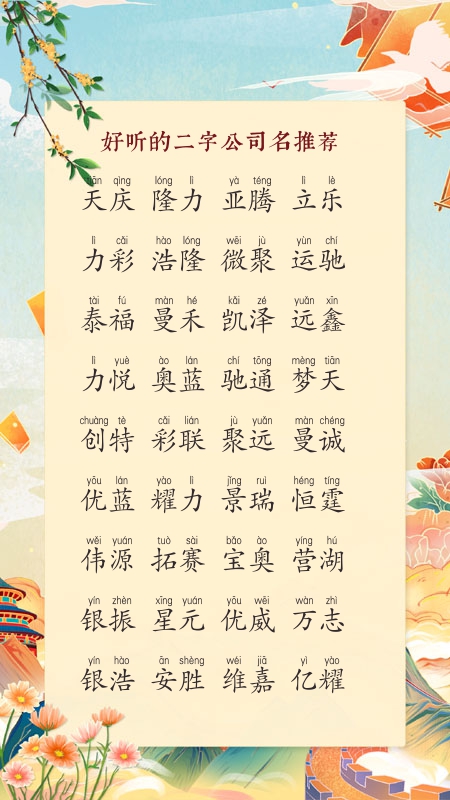 好听的二字公司名推荐
tiān qìng lóng lì yà téng lì lè
天庆 隆力 亚腾 立乐
lì cǎi hào lóng wēi jù yùn chí
力彩 浩隆 微聚 运驰
tài fú màn hé kǎi zé yuǎn xīn
泰福 曼禾 凯泽 远鑫
lì yuè ào lán chí tōng mèng tiān
力悦 奥蓝 驰通 梦天
chuàng tè cǎi lián jù yuǎn màn chéng
创特 彩联 聚远 曼诚
yōu lán yào lì jǐng ruì héng tíng
优蓝 耀力 景瑞 恒霆
wěi yuán tuò sài bǎo ào yíng hú
伟源 拓赛 宝奥 营湖
yín zhèn xīng yuán yōu wēi wàn zhì
银振 星元 优威 万志
yín hào ān shèng wéi jiā yì yào
银浩 安胜 维嘉 亿耀